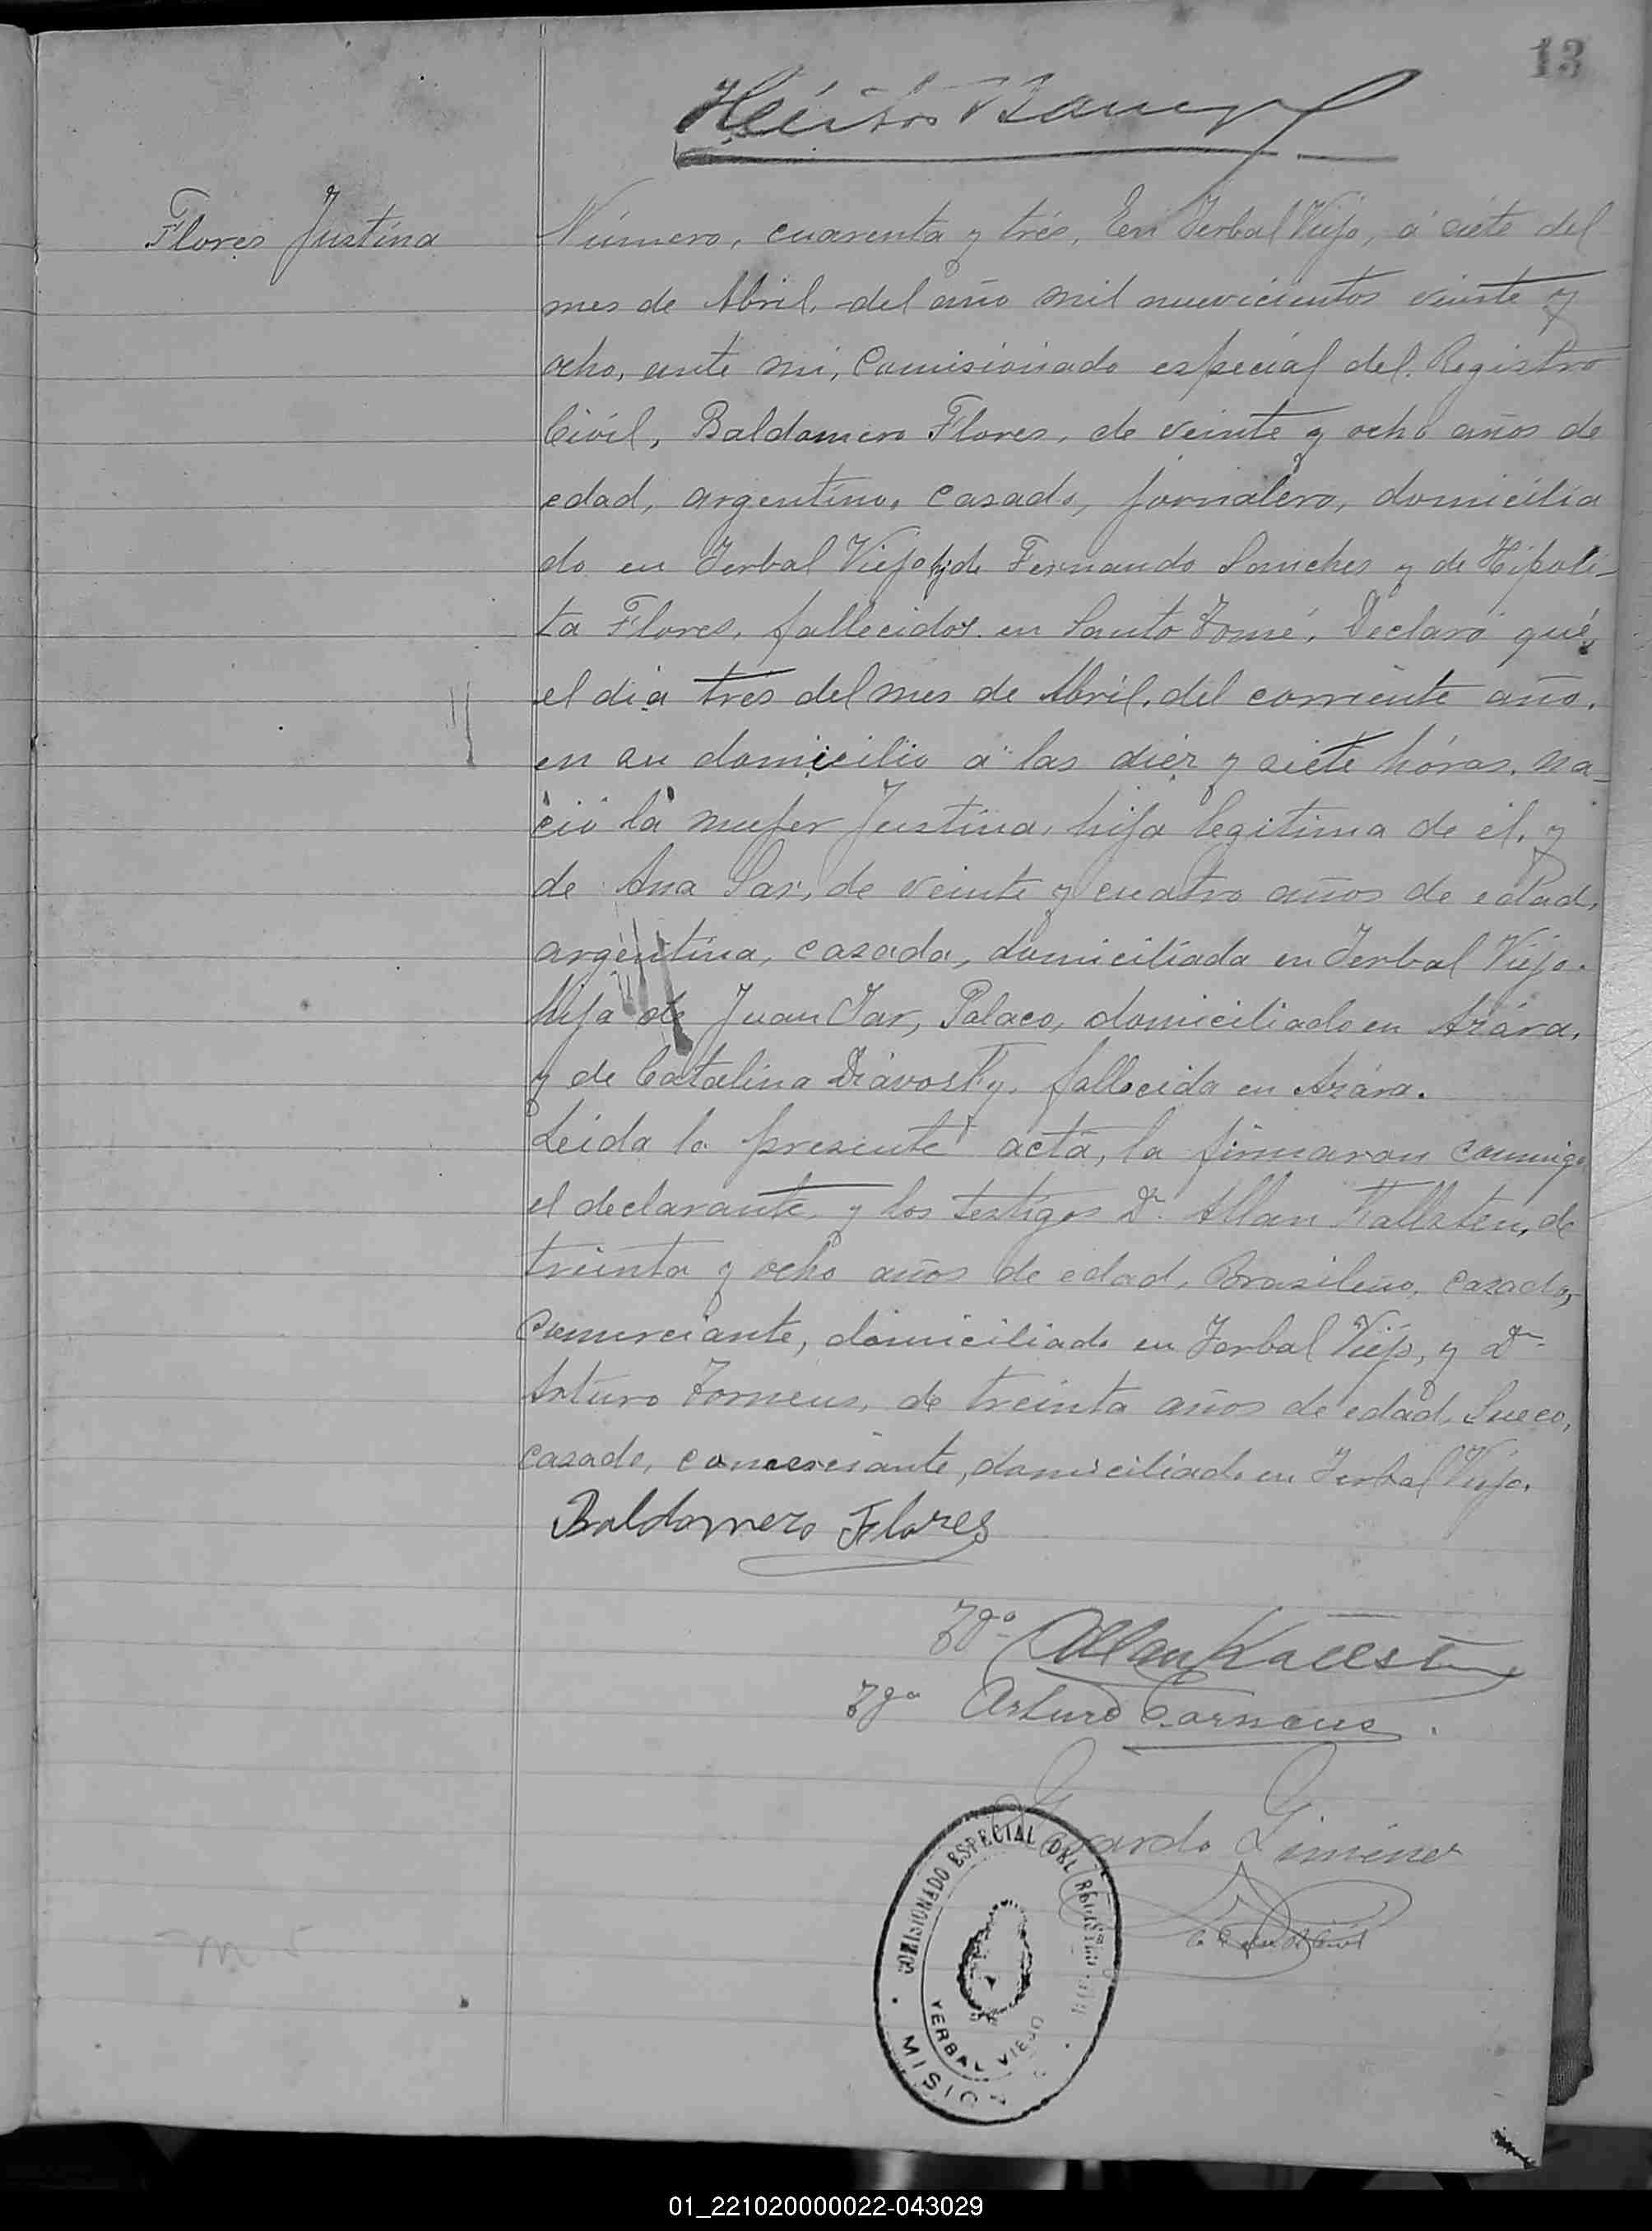 13
Flores Justina
Número, cuarenta y trés, En Yerbal Viejo, á siete del
mes de Abril, del año mil nuevicientos veinte y
ocho, ante mi, Comisionado especial del Registro
Civil, Baldomero Flores, de veinte y ocho años de
edad, argentino, casado, jornalero, domicilia
do en Yerbal Viejo hijo de Fernando Sanches y de Hipoli-
ta Flores, fallecidos en Santo Tomé, Declaró qué,
el dia trés del mes de Abril, del corriente año,
en su domicilio á las diez y siete hóras, na-
ció la mujer Justina, hija legitima de él, y
de Ana de veinte y cuatro años de edad,
argentina, casada, domiciliada en Yerbal Viejo.
hija de Juan Polaco, domiciliado en Azára,
y de Catalina fallecida en Azára.
Leida la presente acta, la firmaron conmigo
el declarante, y los testigos Dn. Allan Kallsten, de
treinta y ocho años de edad, Brasileño, casado,
Comerciante, domiciliado en Yerbal Viejo, y Dn
Arturo Torneus, de treinta años de edad, Sueco,
casado, comerciante, domiciliado en Yerbal Viejo.
Baldomero Flores
Tgo Allan Kallsten
Tgo Arturo Torneus
Gimenez
COMISIONADO ESPECIAL DEL REGISTRO CIVIL
YERBAL VIEJO
MISIONES
01_221020000022-043029